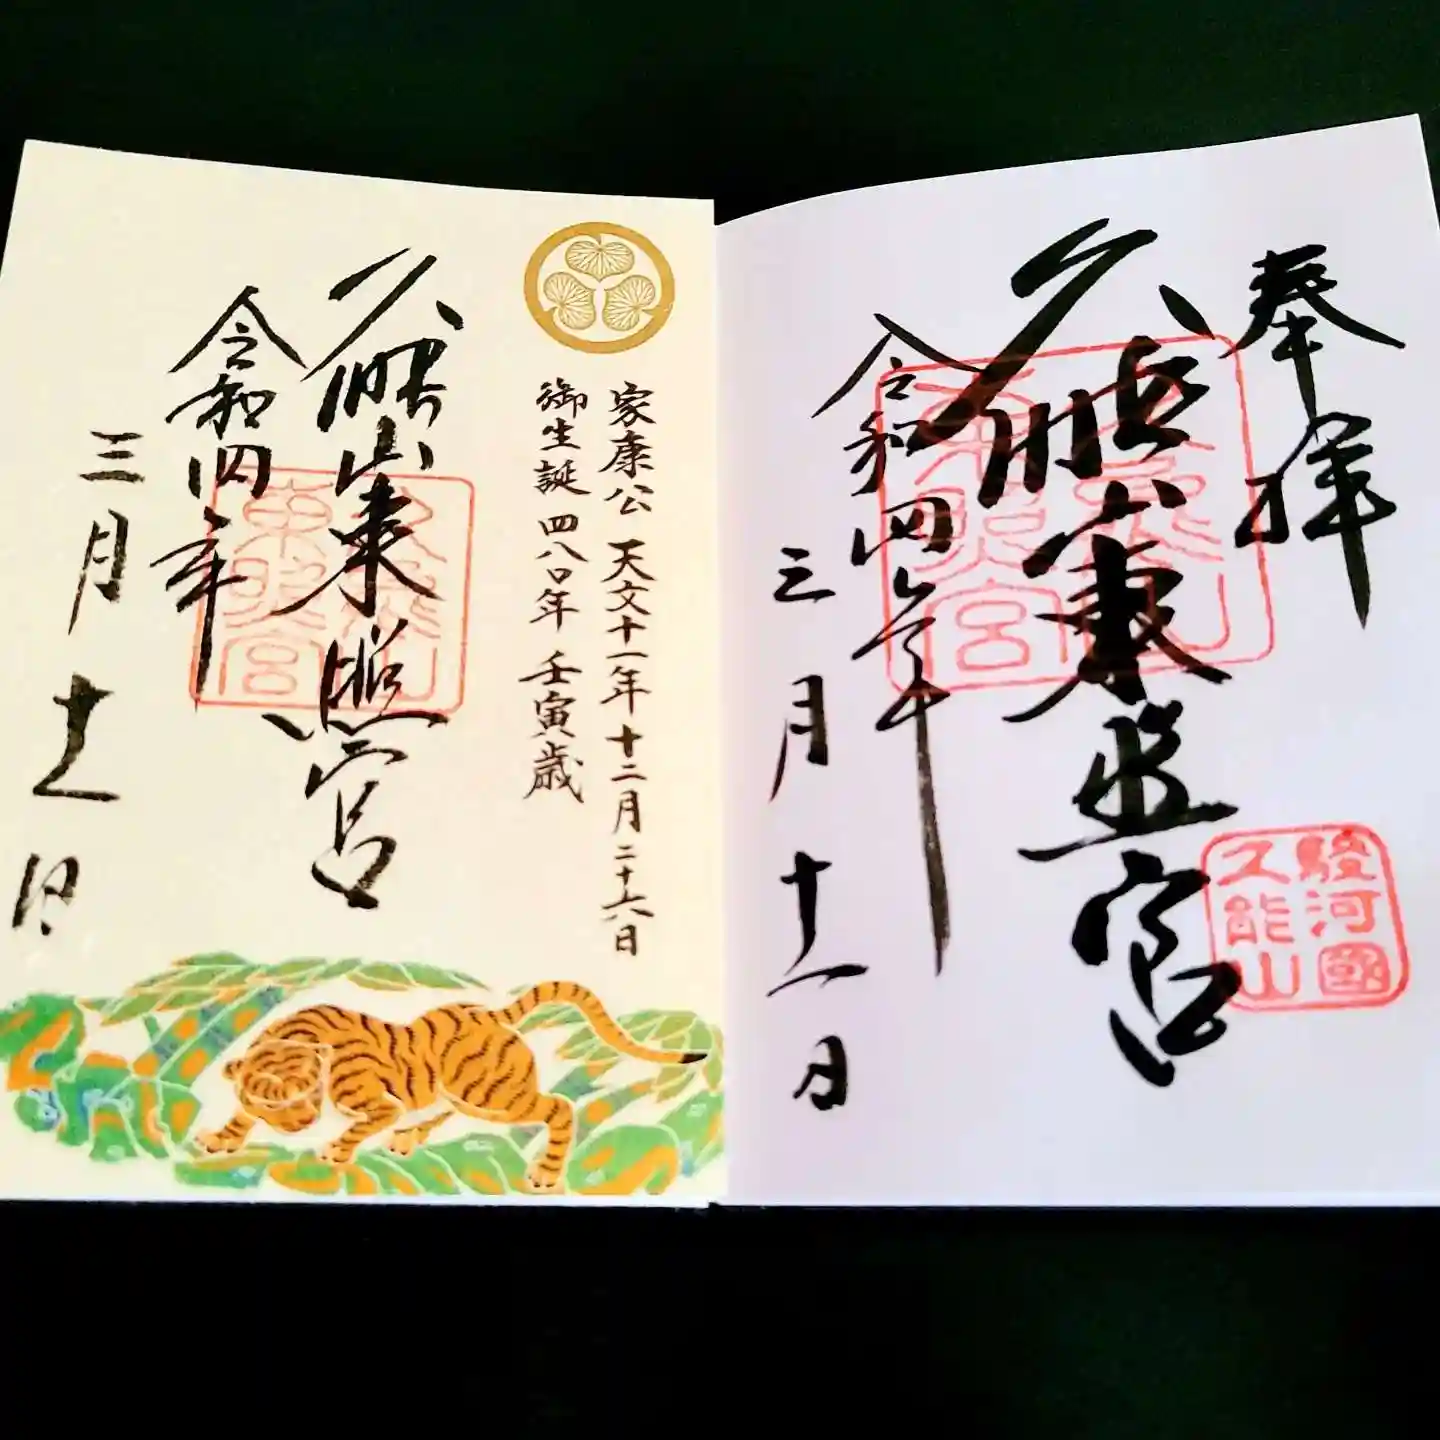 奉拝
久能山東照宮
令和四年
三月十一日
駿河國
久能山
久能山
東照宮
家康公 天文十一年十二月二十六日
御生誕 四八〇年 壬寅歳
久能山東照宮
令和四年
三月十一日
久能山
東照宮